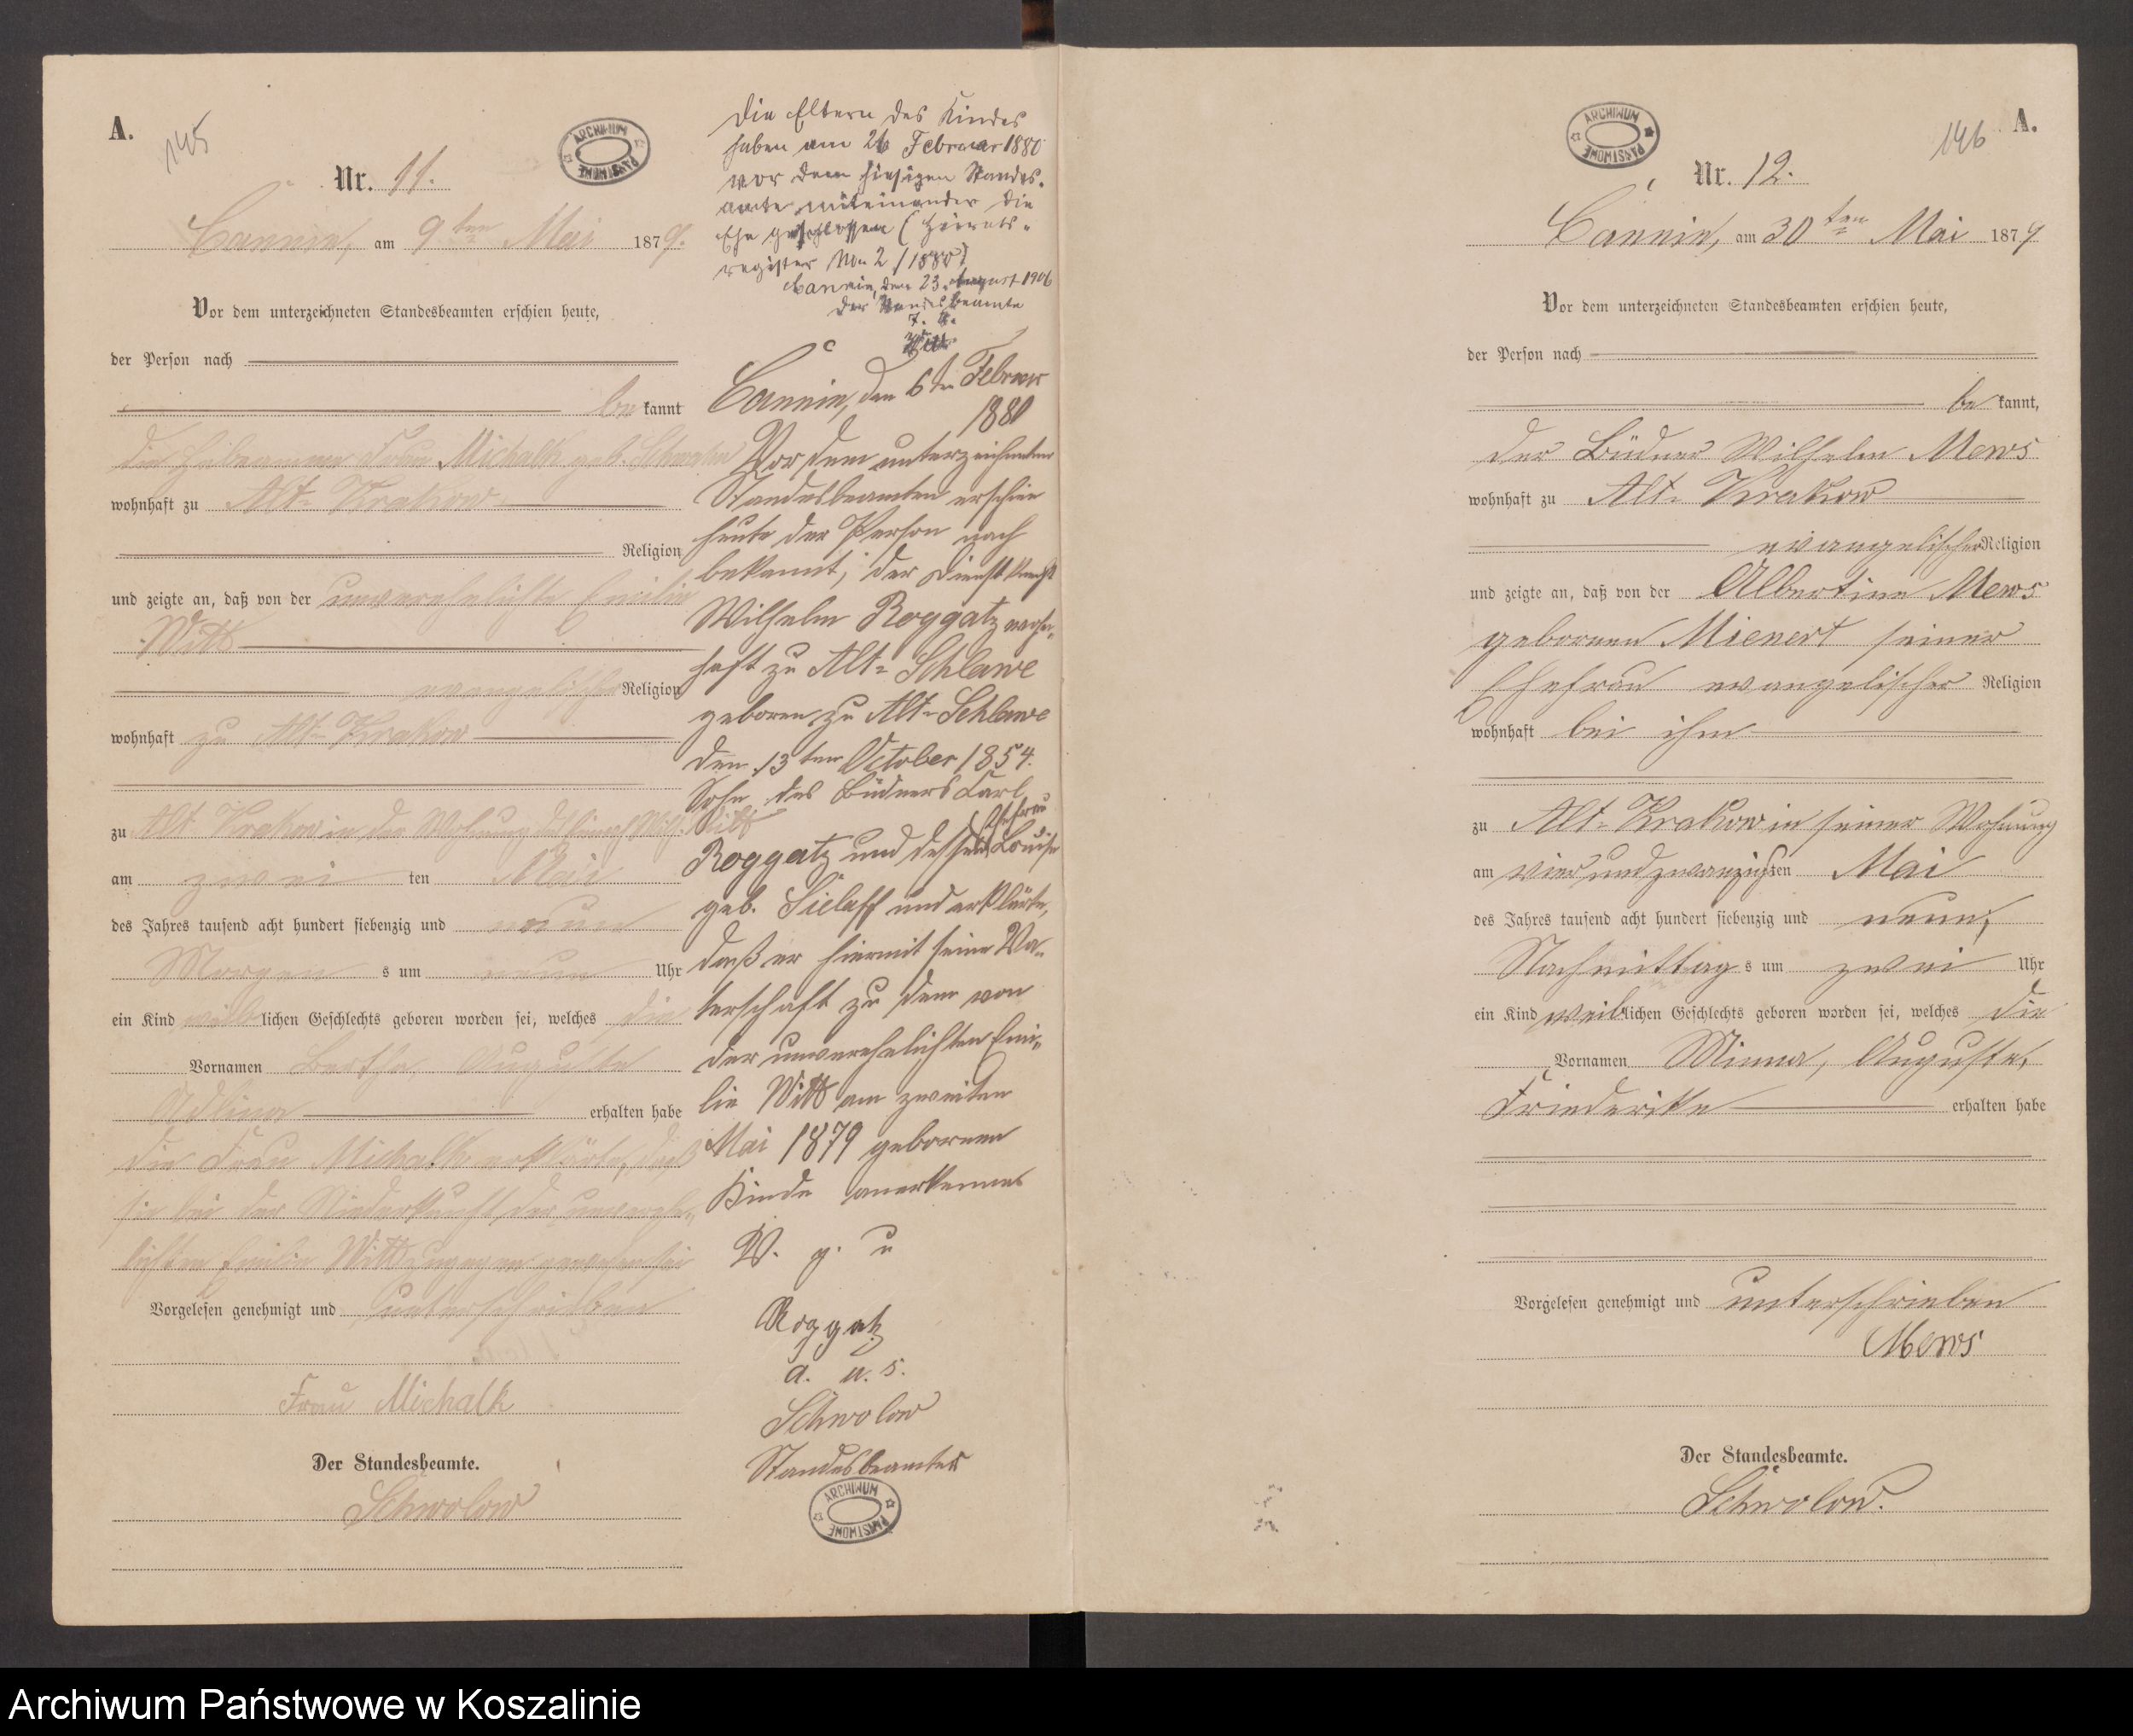 A.
145
ARCHIWUM PAŃSTWOWE
Nr. 11.
Cannin, am 9ten Mai 1879.
Vor dem unterzeichneten Standesbeamten erschien heute,
der Person nach
bekannt
die Hebeamme Frau Michalk geb.
wohnhaft zu Alt-Krakow
Religion
und zeigte an, daß von der unverehelichte Emilie
Witt
evangelischer Religion
wohnhaft zu Alt-Krakow
zu Alt Krakow in der Wohnung des Witt
am zwei ten Mai
des Jahres tausend acht hundert siebenzig und neun
Morgens um neun Uhr
ein Kind weiblichen Geschlechts geboren worden sei, welches die
Vornamen Bertha Auguste
Adline erhalten habe
die Frau Michalk erklärte, daß
sie bei der Niederkunft der unverehe-
lichten Emilie Witt zugegen gewesen sei
Vorgelesen genehmigt und unterschrieben
Frau Michalk
Der Standesbeamte.
Schwolow
Die Eltern des Kindes
haben am 26 Februar 1880
vor dem hiesigen Standes-
amte miteinander die
Ehe geschlossen (Heirats-
register No 2/1880)
Cannin, den 23. August 1906
Der Standesbeamte
Witt
Cannin, den 6ten Februar
1880
Vor dem unterzeichneten
Standesbeamten erschien
heute der Person nach
bekannt, der Dienstknecht
Wilhelm Roggatz wohn-
haft zu Alt-Schlawe
geboren zu Alt-Schlawe
den 13ten October 1854.
Sohn des Büdners Carl
Roggatz und dessen Ehefrau Louise
geb. Sielaff und erklärte,
daß er hiermit seine Va-
terschaft zu dem von
der unverehelichten Emi-
lie Witt am zweiten
Mai 1879 geborenen
Kinde anerkenne
V. g. u
Roggatz
a. u. s.
Schwolow
Standesbeamter
ARCHIWUM PAŃSTWOWE
ARCHIWUM PAŃSTWOWE
146
A.
Nr. 12.
Cannin, am 30ten Mai 1879
Vor dem unterzeichneten Standesbeamten erschien heute,
der Person nach
bekannt,
der Büdner Wilhelm Mews
wohnhaft zu Alt-Krakow
evangelischer Religion
und zeigte an, daß von der Albertine Mews
geborenen Mienert seiner
Ehefrau evangelischer Religion
wohnhaft bei ihm
zu Alt-Krakow in seiner Wohnung
am vier und zwanzigsten Mai
des Jahres tausend acht hundert siebenzig und neun,
Nachmittags um zwei Uhr
ein Kind weiblichen Geschlechts geboren worden sei, welches die
Vornamen Minna, Auguste,
Friederike erhalten habe
Vorgelesen genehmigt und unterschrieben
Mews
Der Standesbeamte.
Schwolow.
Archiwum Państwowe w Koszalinie